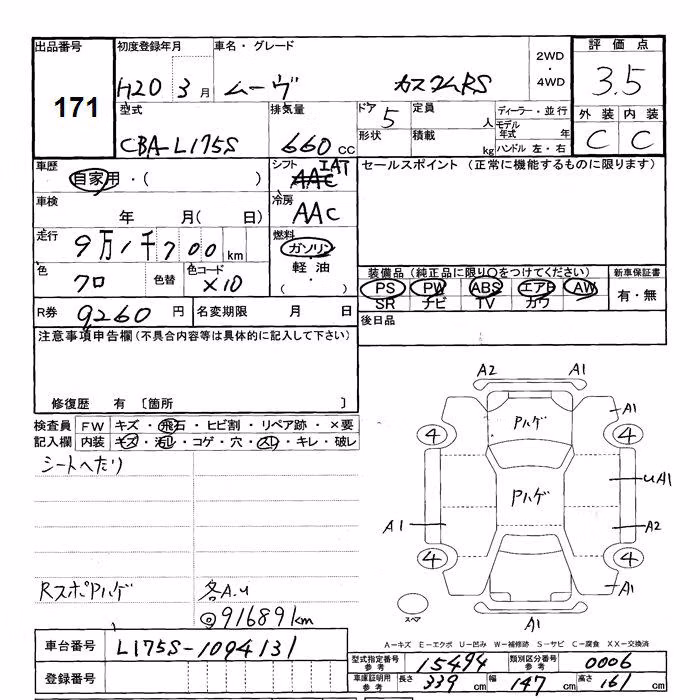 出品番号 初度登録年月 車名・グレード 2WD・4WD 評価点
171 H20 3月 ムーヴ カスタムRS 3.5
型式 排気量 ドア 5 定員 人 ディーラー・並行 外装 内装
CBA-L175S 660cc 形状 積載 kg モデル年式 年 ハンドル左・右 C C
車歴 自家用・( ) シフト IAT セールスポイント(正常に機能するものに限ります)
車検 年 月( 日) 冷房 AAC
走行 9万1千700km 燃料 ガソリン・軽油・( )
色 クロ 色替 色コード X10 装備品(純正品に限り○をつけてください) 新車保証書
PS PW ABS エアB AW 有・無
SR ナビ TV カワ
R券 9260円 名変期限 月 日 後日品
注意事項申告欄(不具合内容等は具体的に記入して下さい)
修復歴 有 〔箇所 〕
検査員 FW キズ・飛石・ヒビ割・リペア跡・×要
記入欄 内装 キズ・汚レ・コゲ・穴・スレ・キレ・破レ
シートへたり
RスポPハゲ 各A.u
◎91689km
A2 A1
A1
Pハゲ
4 4
Pハゲ
uA1
A1 A2
4 4
A1
スペア A1
A-キズ E-エクボ U-凹み W-補修跡 S-サビ C-腐食 XX-交換済
車台番号 L175S-1094131
型式指定番号 参考 15494 類別区分番号 参考 0006
登録番号 車庫証明用 参考 長さ 339cm 幅 147cm 高さ 161cm